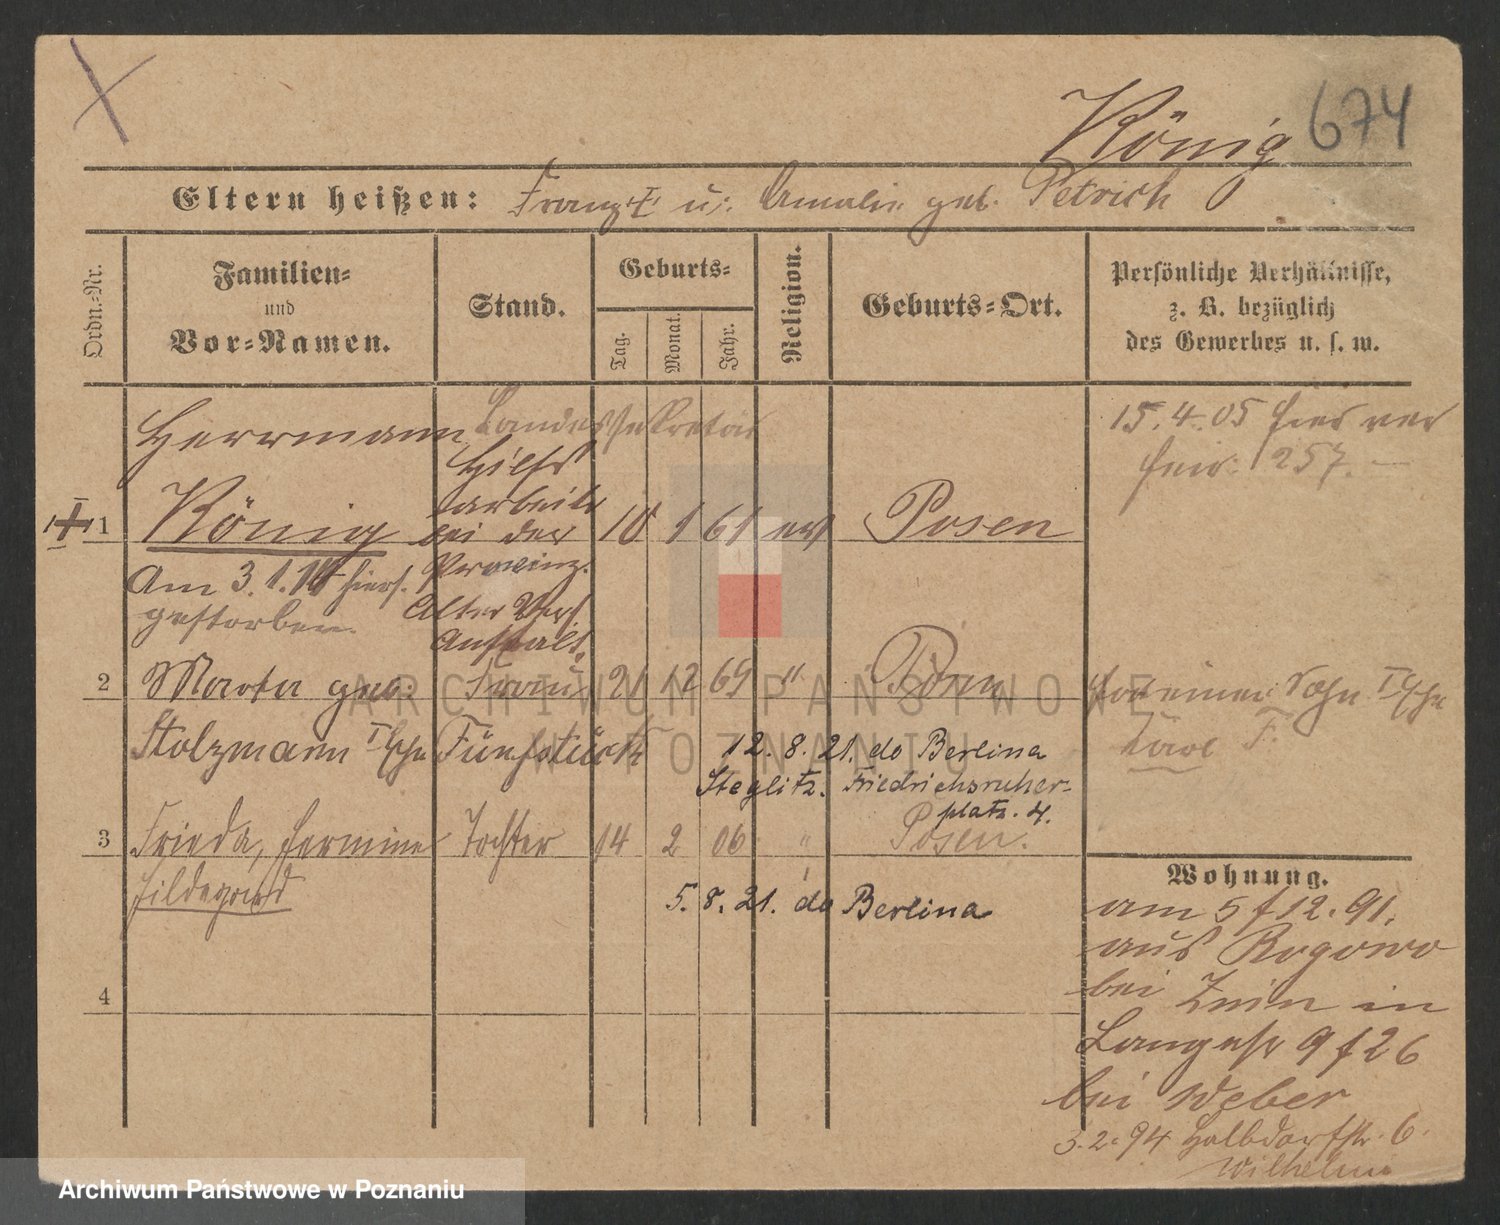 König 674
Eltern heißen: Franz † u: Amalie geb. Petrich
Ordn.-Nr.
Familien-
und
Vor-Namen.
Stand.
Geburts-
Tag.
Monat.
Jahr.
Religion.
Geburts-Ort.
Persönliche Verhältnisse,
z. B. bezüglich
des Gewerbes u. s. w.
Herrmann Landessekretär
15.4.05 hier ver
heir: 257.
Hilfs
arbeiter
1 König bei der 10 1 61 ev Posen
Provinz.
Am 3.1. hiers. Alters Vers.
gestorben. Anstalt.
2 Marta geb: Frau 21 12 69 " Posen
hat einen Sohn I Ehe
Stolzmann I Ehe Fünfstück
Karl F.
12.8.21. do Berlina
Steglitz. Friedrichsruher-
platz. 4.
3 Frieda, Hermine Tochter 14 2 06 " Posen.
Hildegard
5.8.21. do Berlina
4
Wohnung.
am 5/12.91.
aus Rogowo
bei Znin in
Langestr 9/26
bei Weber
3.2.94 Halbdorfstr. 6.
Wilhelmi
ARCHIWUM PAŃSTWOWE
W POZNANIU
Archiwum Państwowe w Poznaniu